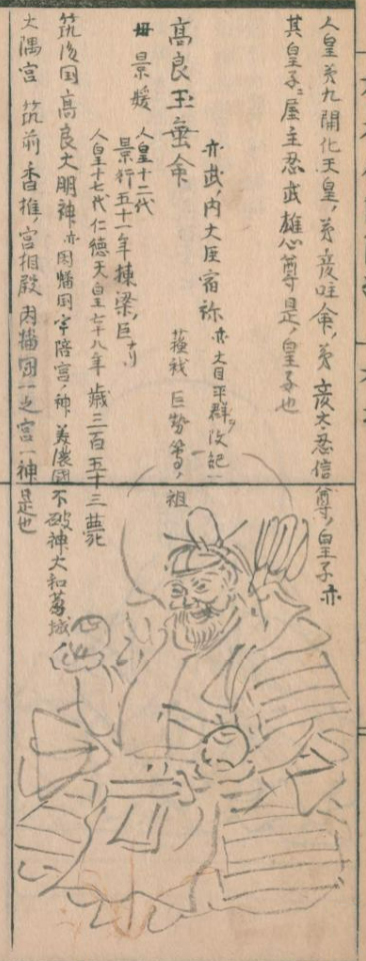 人皇第九開化天皇ノ第彦吐命ノ第彦太忍信尊ノ皇子亦
其皇子ニ屋主忍武雄心尊是ノ皇子也
亦武ノ内大臣宿祢 亦大目平群ノ改記一
蘓我 巨勢等ノ祖
高良玉垂命
母 景媛
人皇十二代
景行五十一年棟梁ノ臣ナリ
人皇十七代仁德天皇七十八年 歳三百五十三薨
筑後国高良大明神亦因幡国宇陪宮ノ神 美濃國不破神大和葛城
大隅宮 筑前 香推ノ宮相殿 因幡国一之宮一神是也